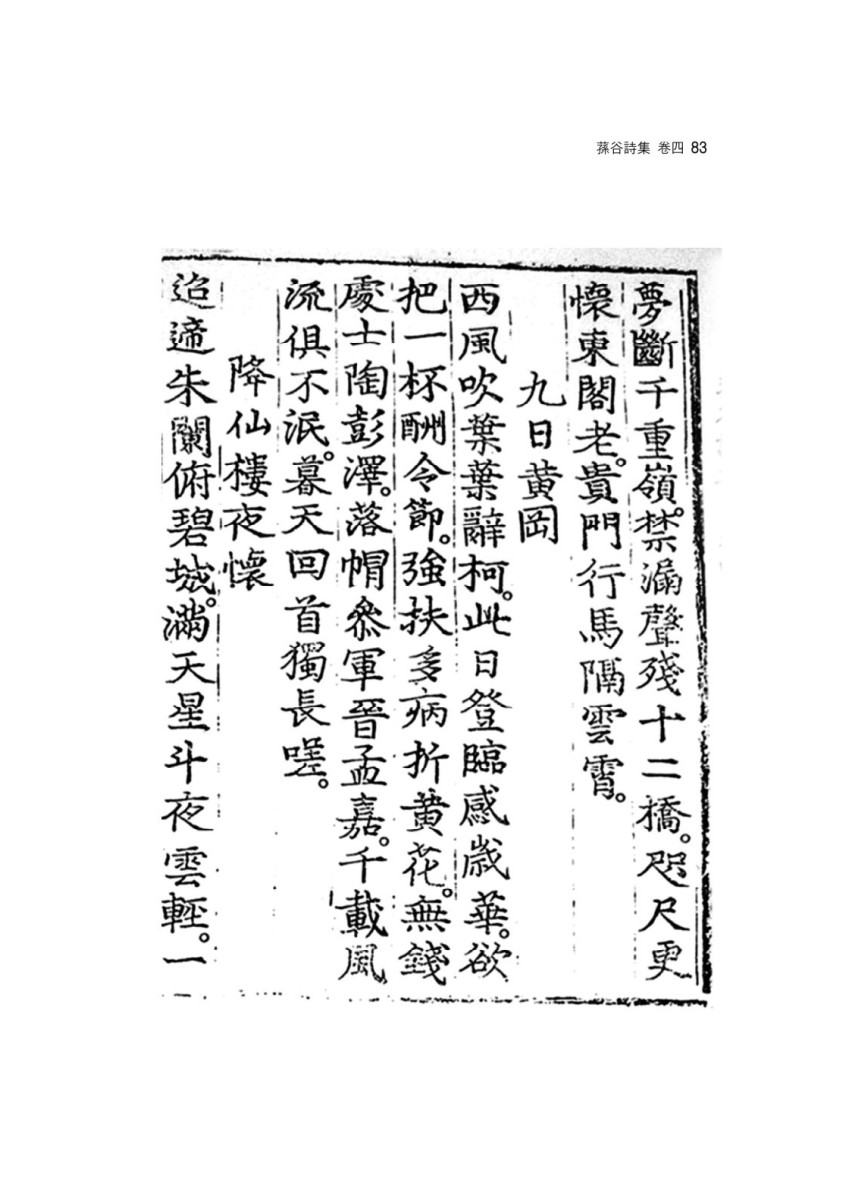 蓀谷詩集 卷四 83
夢斷千重嶺。禁漏聲殘十二橋。咫尺更
懷東閣老。貴門行馬隔雲霄。
九日黃岡
西風吹葉葉辭柯。此日登臨感歲華。欲
把一杯酬令節。強扶多病折黃花。無錢
處士陶彭澤。落帽叅軍晉孟嘉。千載風
流俱不泯。暮天回首獨長嗟。
降仙樓夜懷
迢遆朱闌俯碧城。滿天星斗夜雲輕。一